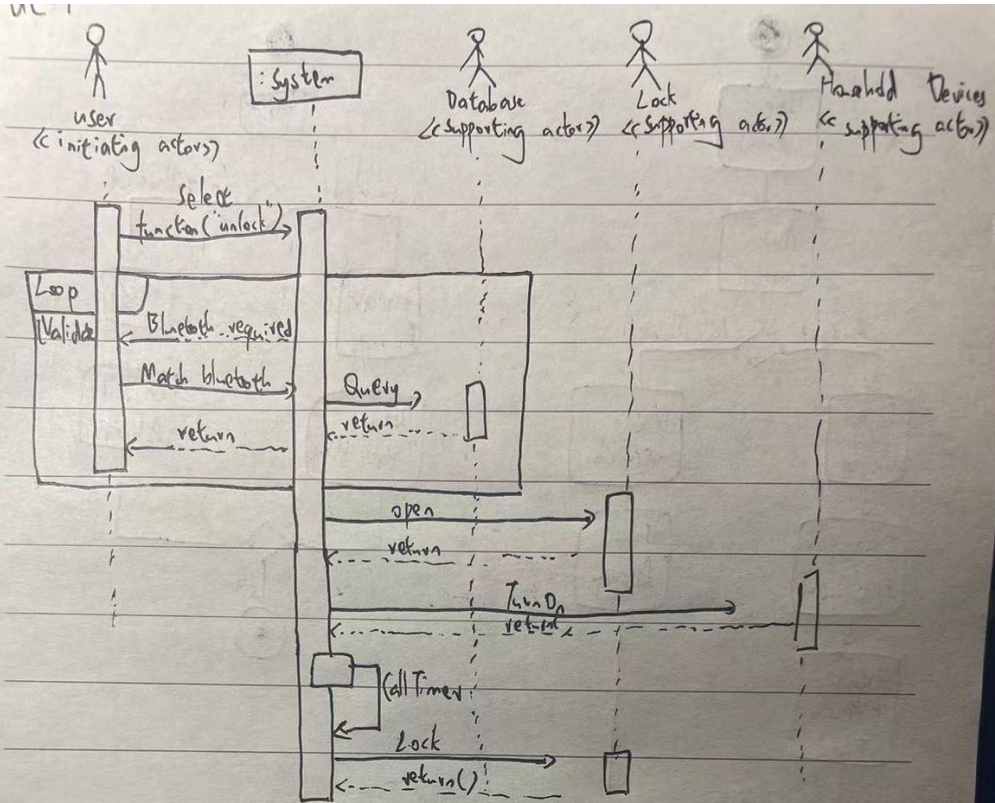 UC-1
: System
user
<< initiating actor >>
Database
<< supporting actor >>
Lock
<< supporting actor >>
Household Devices
<< supporting actor >>
Select
function("unlock")
Loop
[Validate
Bluetooth required
Match bluetooth
Query
return
return
open
return
Turn On
return
Call Timer
Lock
return()